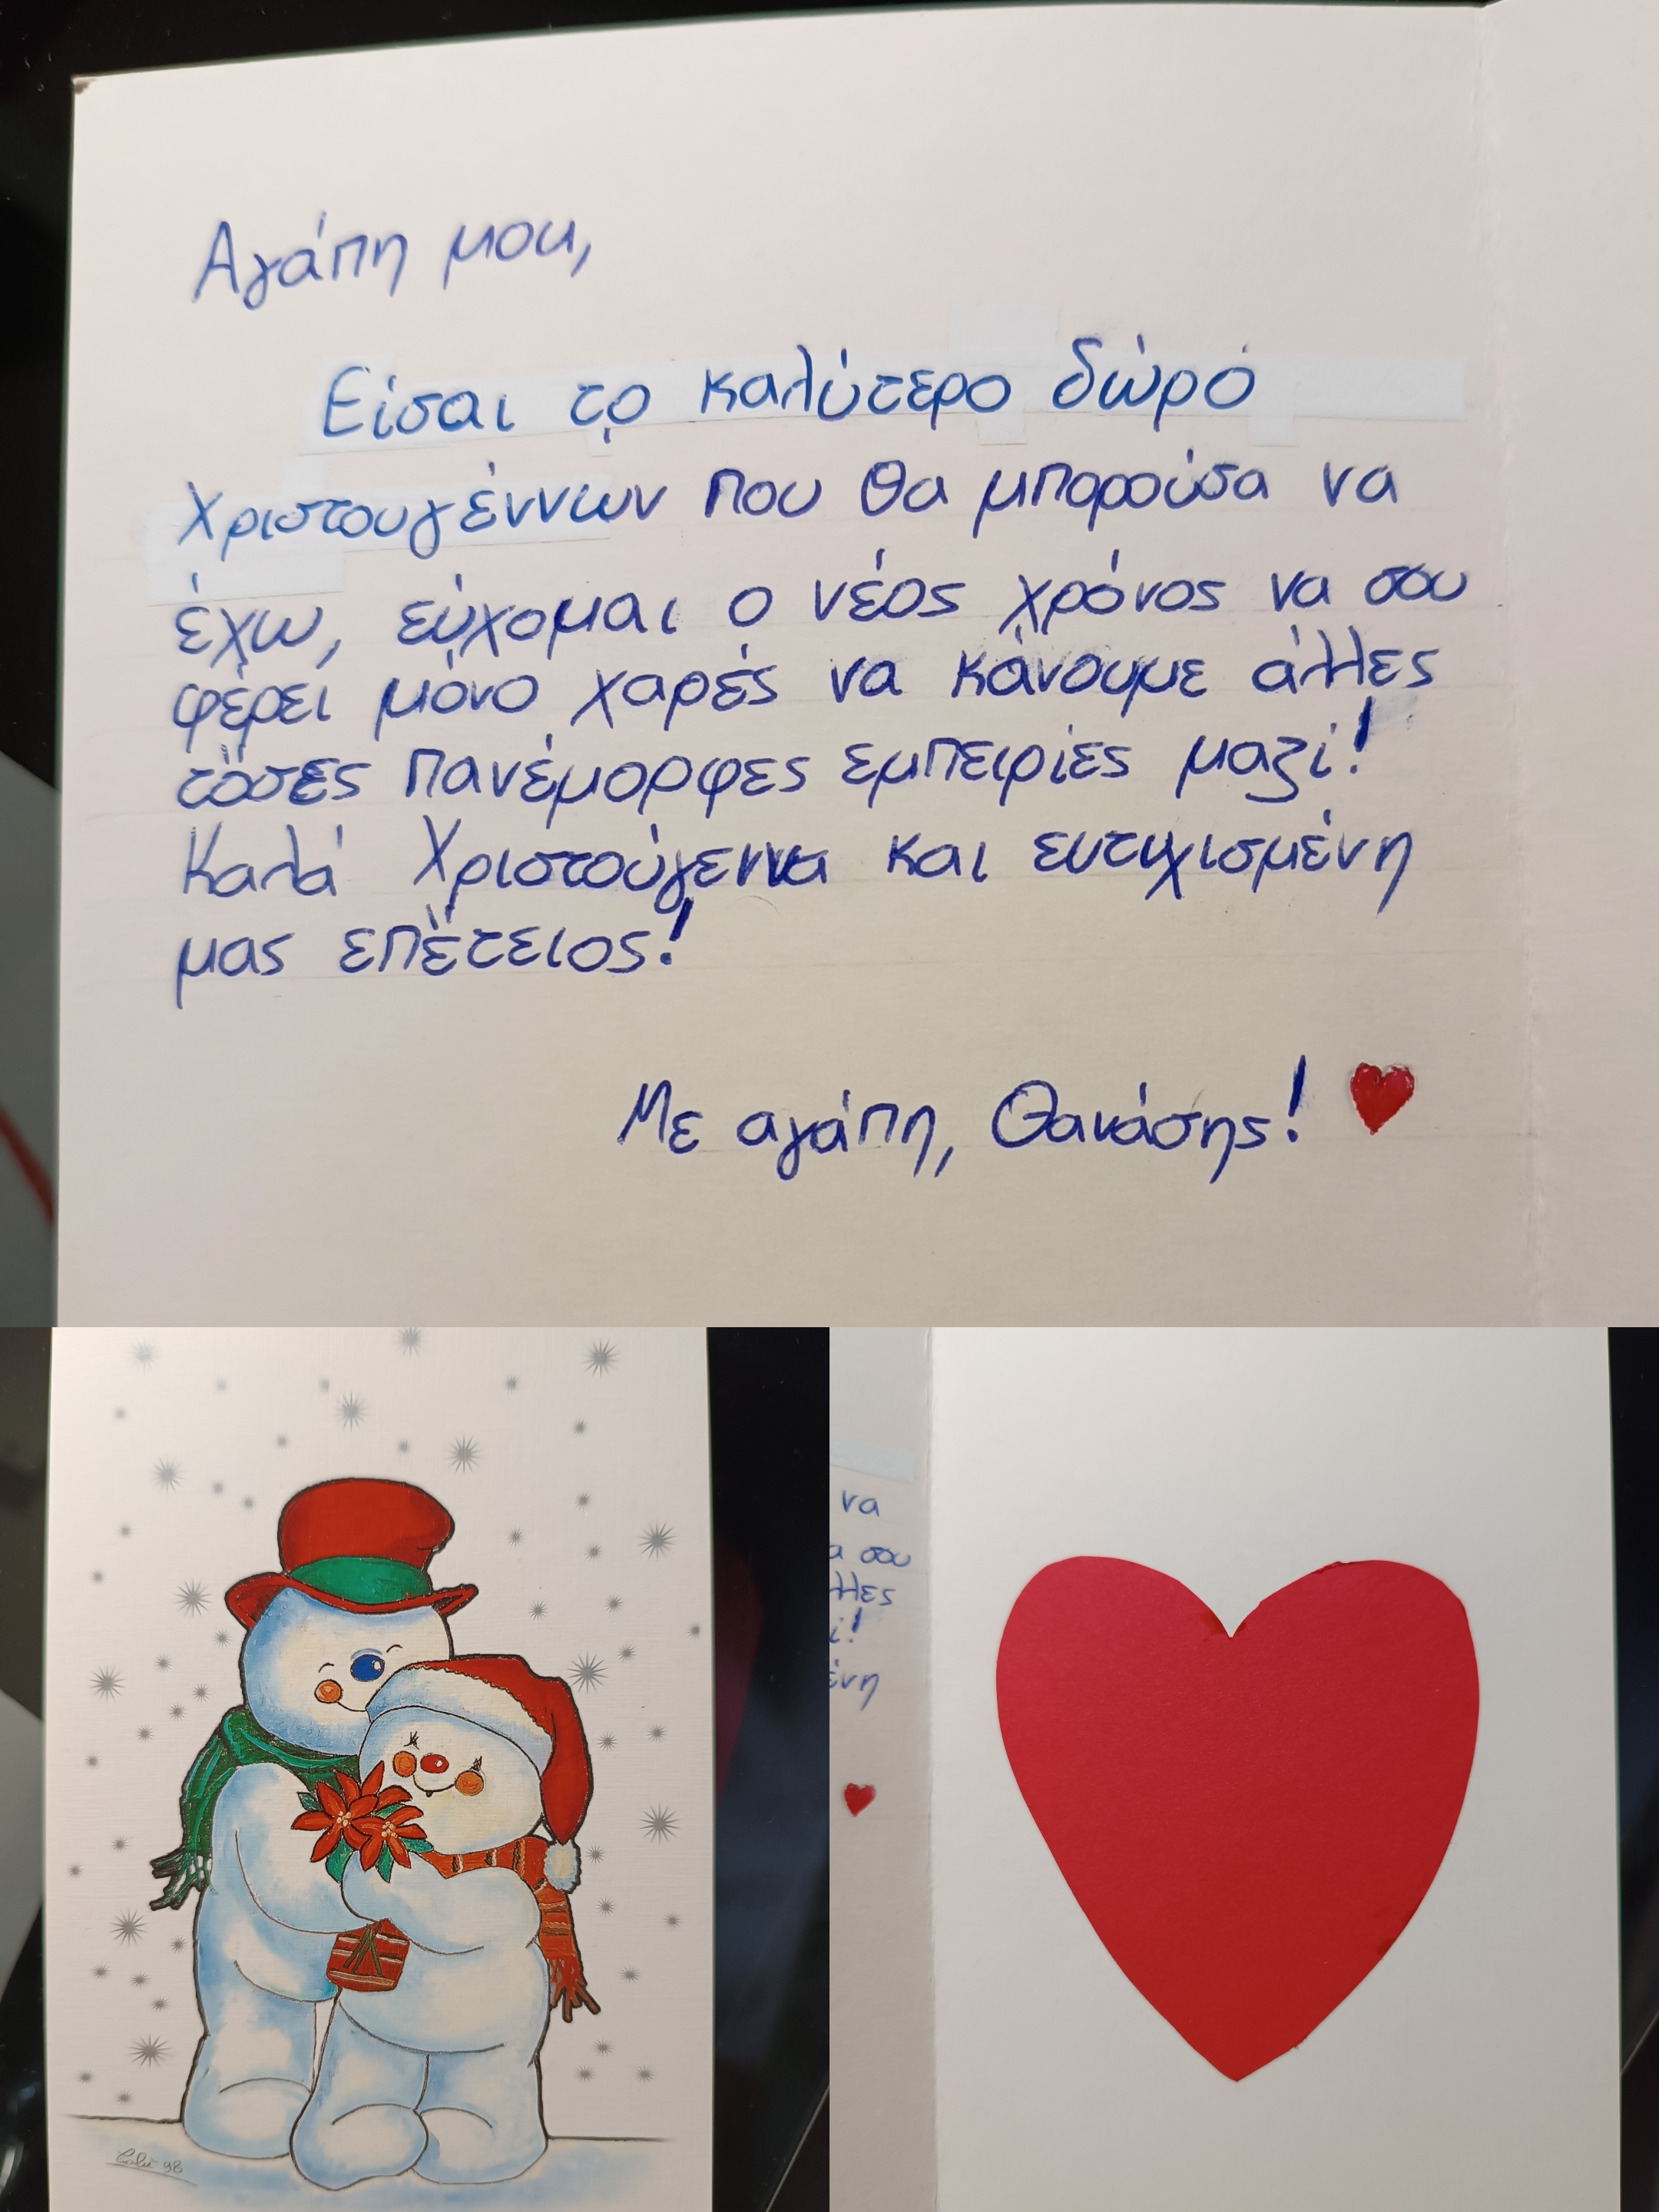 Αγάπη μου,
Είσαι το καλύτερο δώρο
Χριστουγέννων που θα μπορούσα να
έχω, εύχομαι ο νέος χρόνος να σου
φέρει μόνο χαρές να κάνουμε άλλες
τόσες πανέμορφες εμπειρίες μαζί!
Καλά Χριστούγεννα και ευτυχισμένη
μας επέτειος!
Με αγάπη, Θανάσης!
να
α σου
λλες
ί!
ένη
98